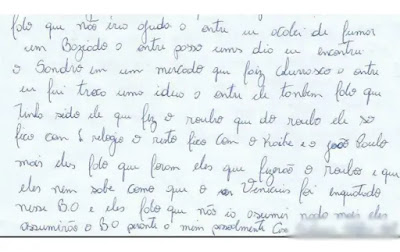 folo que não irio ajuda o entru eu acolei de fumor
um Boziodo o entru posso ums dio eu encontru
o Sondro em um mercado que foiz churrosco o entru
eu fui troco uma ideio o entru ele tonbem folo que
tinho sido ele que fez o roulho que do roulo ele so
fico com 1 relogio o risto fico com o Koike e o João Poulo
mois eles folo que foram eles que fizerõo o roulos e que
eles nem sobe como que o Venicius foi enquotodo
nesse B.O e eles folo que não io ossumei nodo mois eles
ossumirão o B.O peronte o mim pesoolmente Com